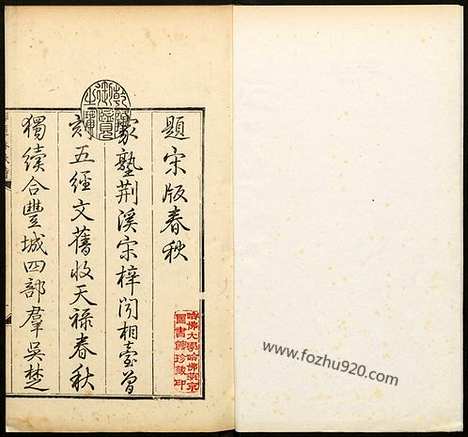 題宋版春秋
家塾荆溪宋梓閱相臺曾
刻五經文舊收天祿春秋
獨續合豐城四部羣吳楚
哈佛大學哈佛燕京
圖書館珍藏印
www.fozhu920.com